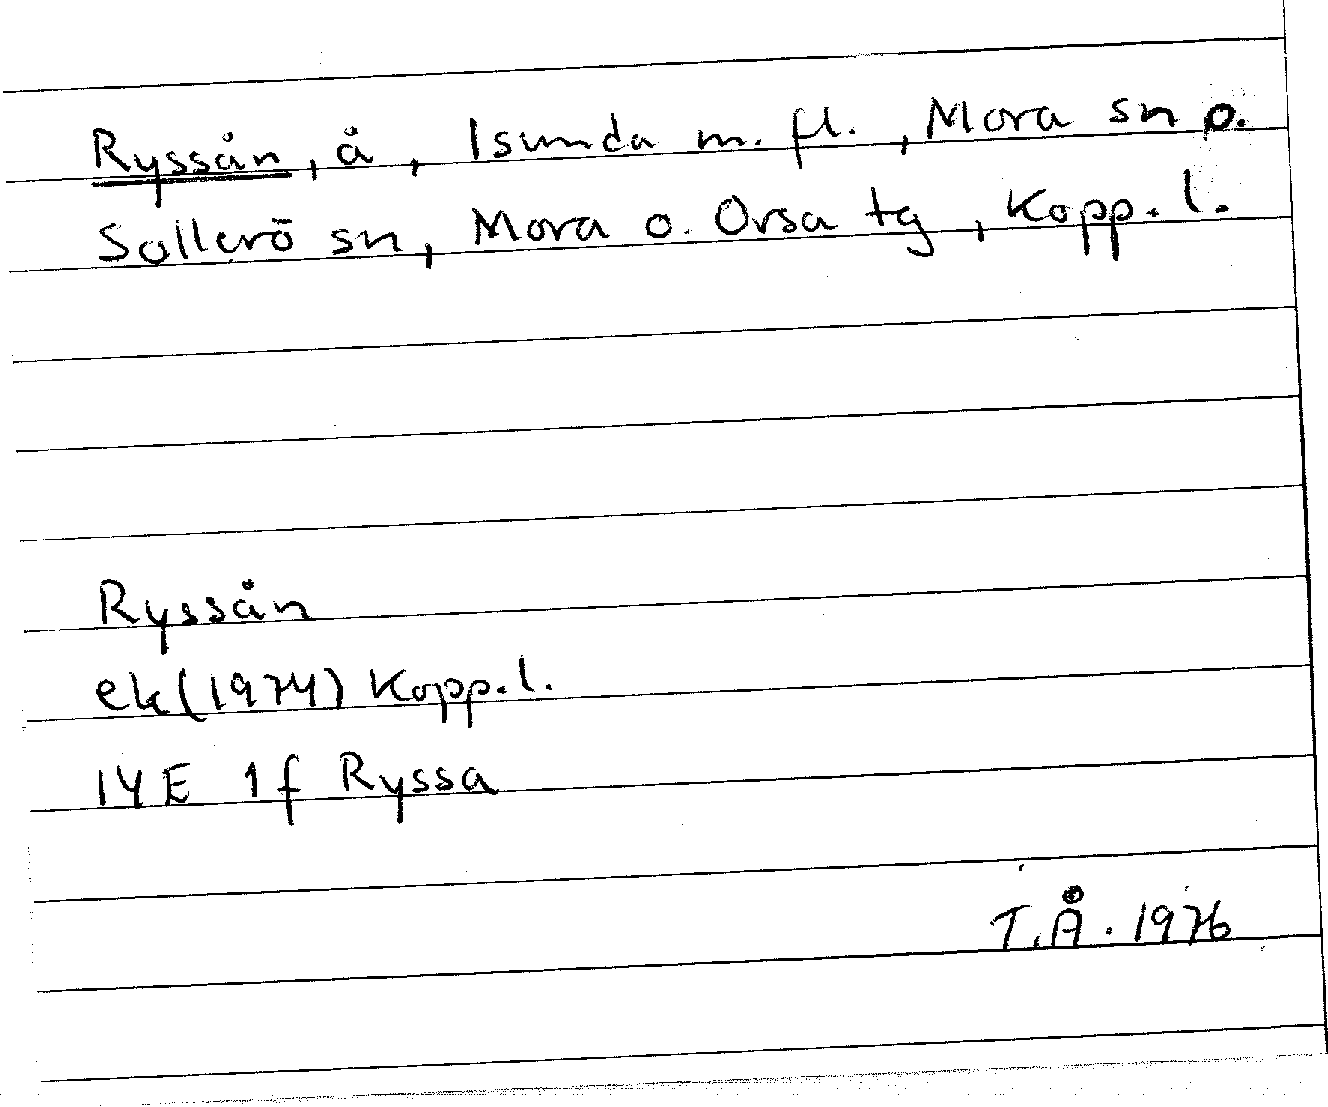 Ryssån, å, Isunda m. fl., Mora sn o.
Sollerö sn, Mora o. Orsa tg, Kopp. l.
Ryssån
ek (1974) Kopp. l.
14E 1f Ryssa
T.Å. 1976